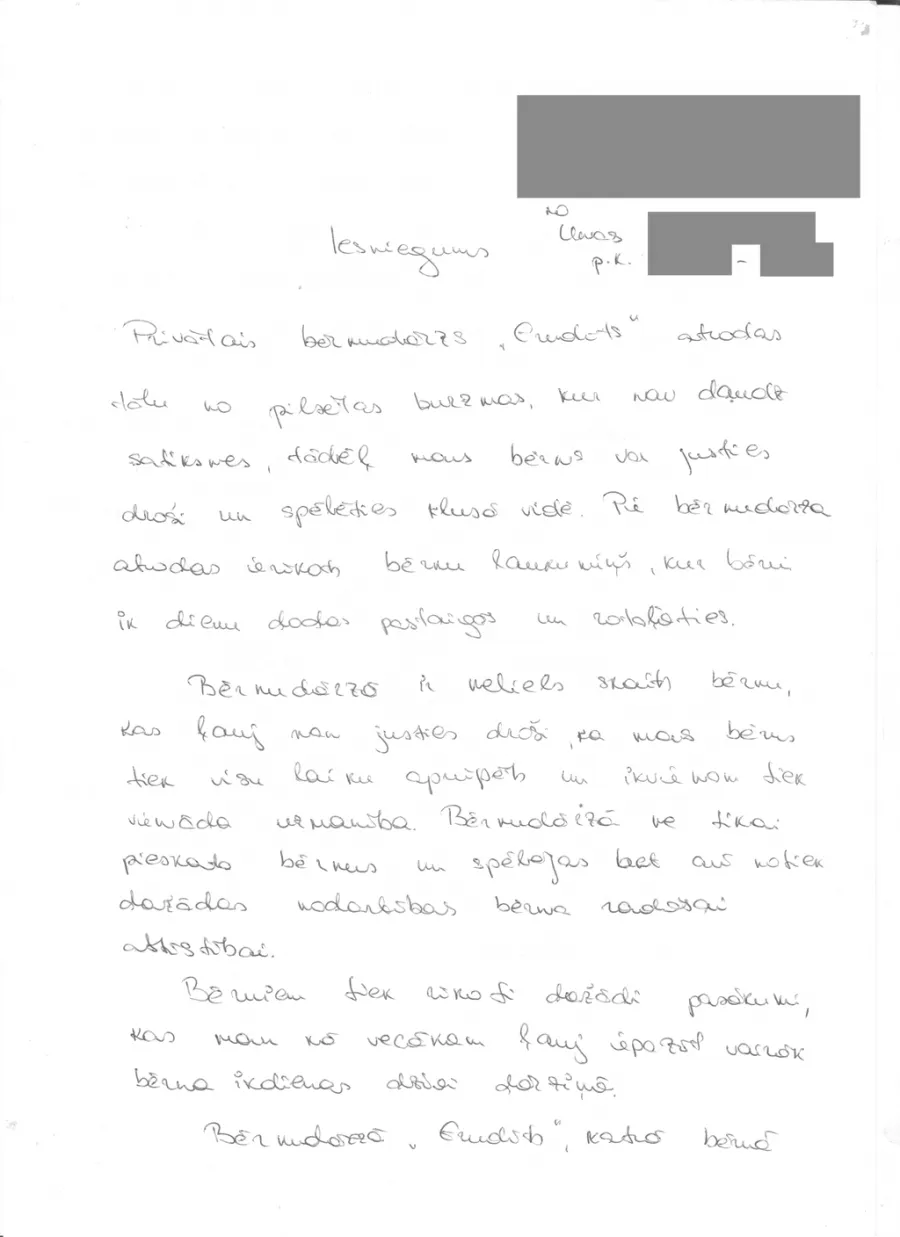 no
Iesniegums
p.k.
Privātais bērnudārzs „Erudīts" atrodas
tālu no pilsētas burzmas, kur nav daudz
satiksmes, tādēļ mans bērns var justies
droši un spēlēties klusā vidē. Pie bērnudārza
atrodas ierīkots bērnu laukumiņš, kur bērni
ik dienu dodas pastaigās un rotaļāties.
Bērnudārzā ir neliels skaits bērnu,
kas ļauj man justies droši, ka mans bērns
tiek visu laiku aprūpēts un ikvienam tiek
vienāda uzmanība. Bērnudārzā ne tikai
pieskata bērnus un spēlējas bet arī notiek
dažādas nodarbības bērna radošai
attīstībai.
Bērniem tiek rīkoti dažādi pasākumi,
kas man kā vecākam ļauj iepazīt vairāk
bērna ikdienas dzīvi dārziņā.
Bērnudārzā „Erudīts", katrā bērnā